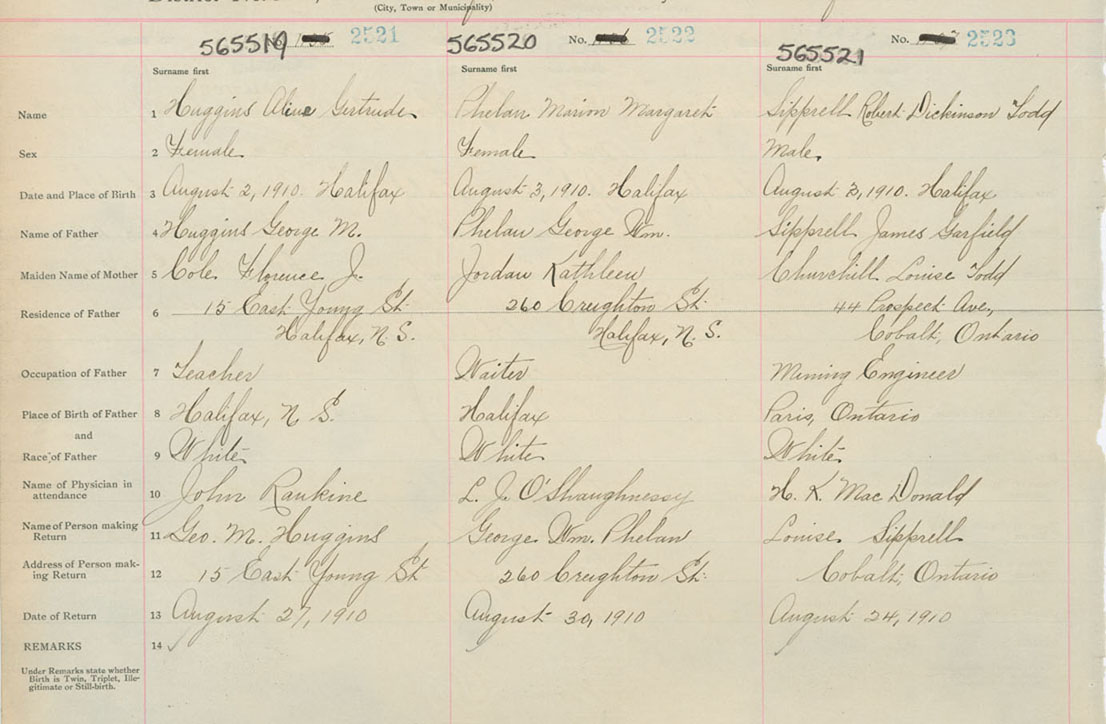 (City, Town or Municipality)
565519 2521 565520 No. 2522 565521 No. 2523
Surname first Surname first Surname first
Name 1 Huggins Aline Gertrude Phelan Marion Margaret Sipprell Robert Dickinson Todd
Sex 2 Female Female Male
Date and Place of Birth 3 August 2, 1910. Halifax August 3, 1910. Halifax August 3, 1910. Halifax
Name of Father 4 Huggins George M. Phelan George Wm. Sipprell James Garfield
Maiden Name of Mother 5 Cole Florence J. Jordan Kathleen Churchill Louise Todd
Residence of Father 6 15 East Young St. 260 Creighton St. 44 Prospect Ave.,
Halifax, N. S. Halifax, N. S. Cobalt, Ontario
Occupation of Father 7 Teacher Waiter Mining Engineer
Place of Birth of Father 8 Halifax, N. S. Halifax Paris, Ontario
and
Race of Father 9 White White White
Name of Physician in
attendance 10 John Rankine L. J. O'Shaughnessy H. K. Mac Donald
Name of Person making
Return 11 Geo. M. Huggins George Wm. Phelan Louise Sipprell
Address of Person mak-
ing Return 12 15 East Young St 260 Creighton St. Cobalt, Ontario
Date of Return 13 August 27, 1910 August 30, 1910 August 24, 1910
REMARKS 14
Under Remarks state whether
Birth is Twin, Triplet, Ille-
gitimate or Still-birth.